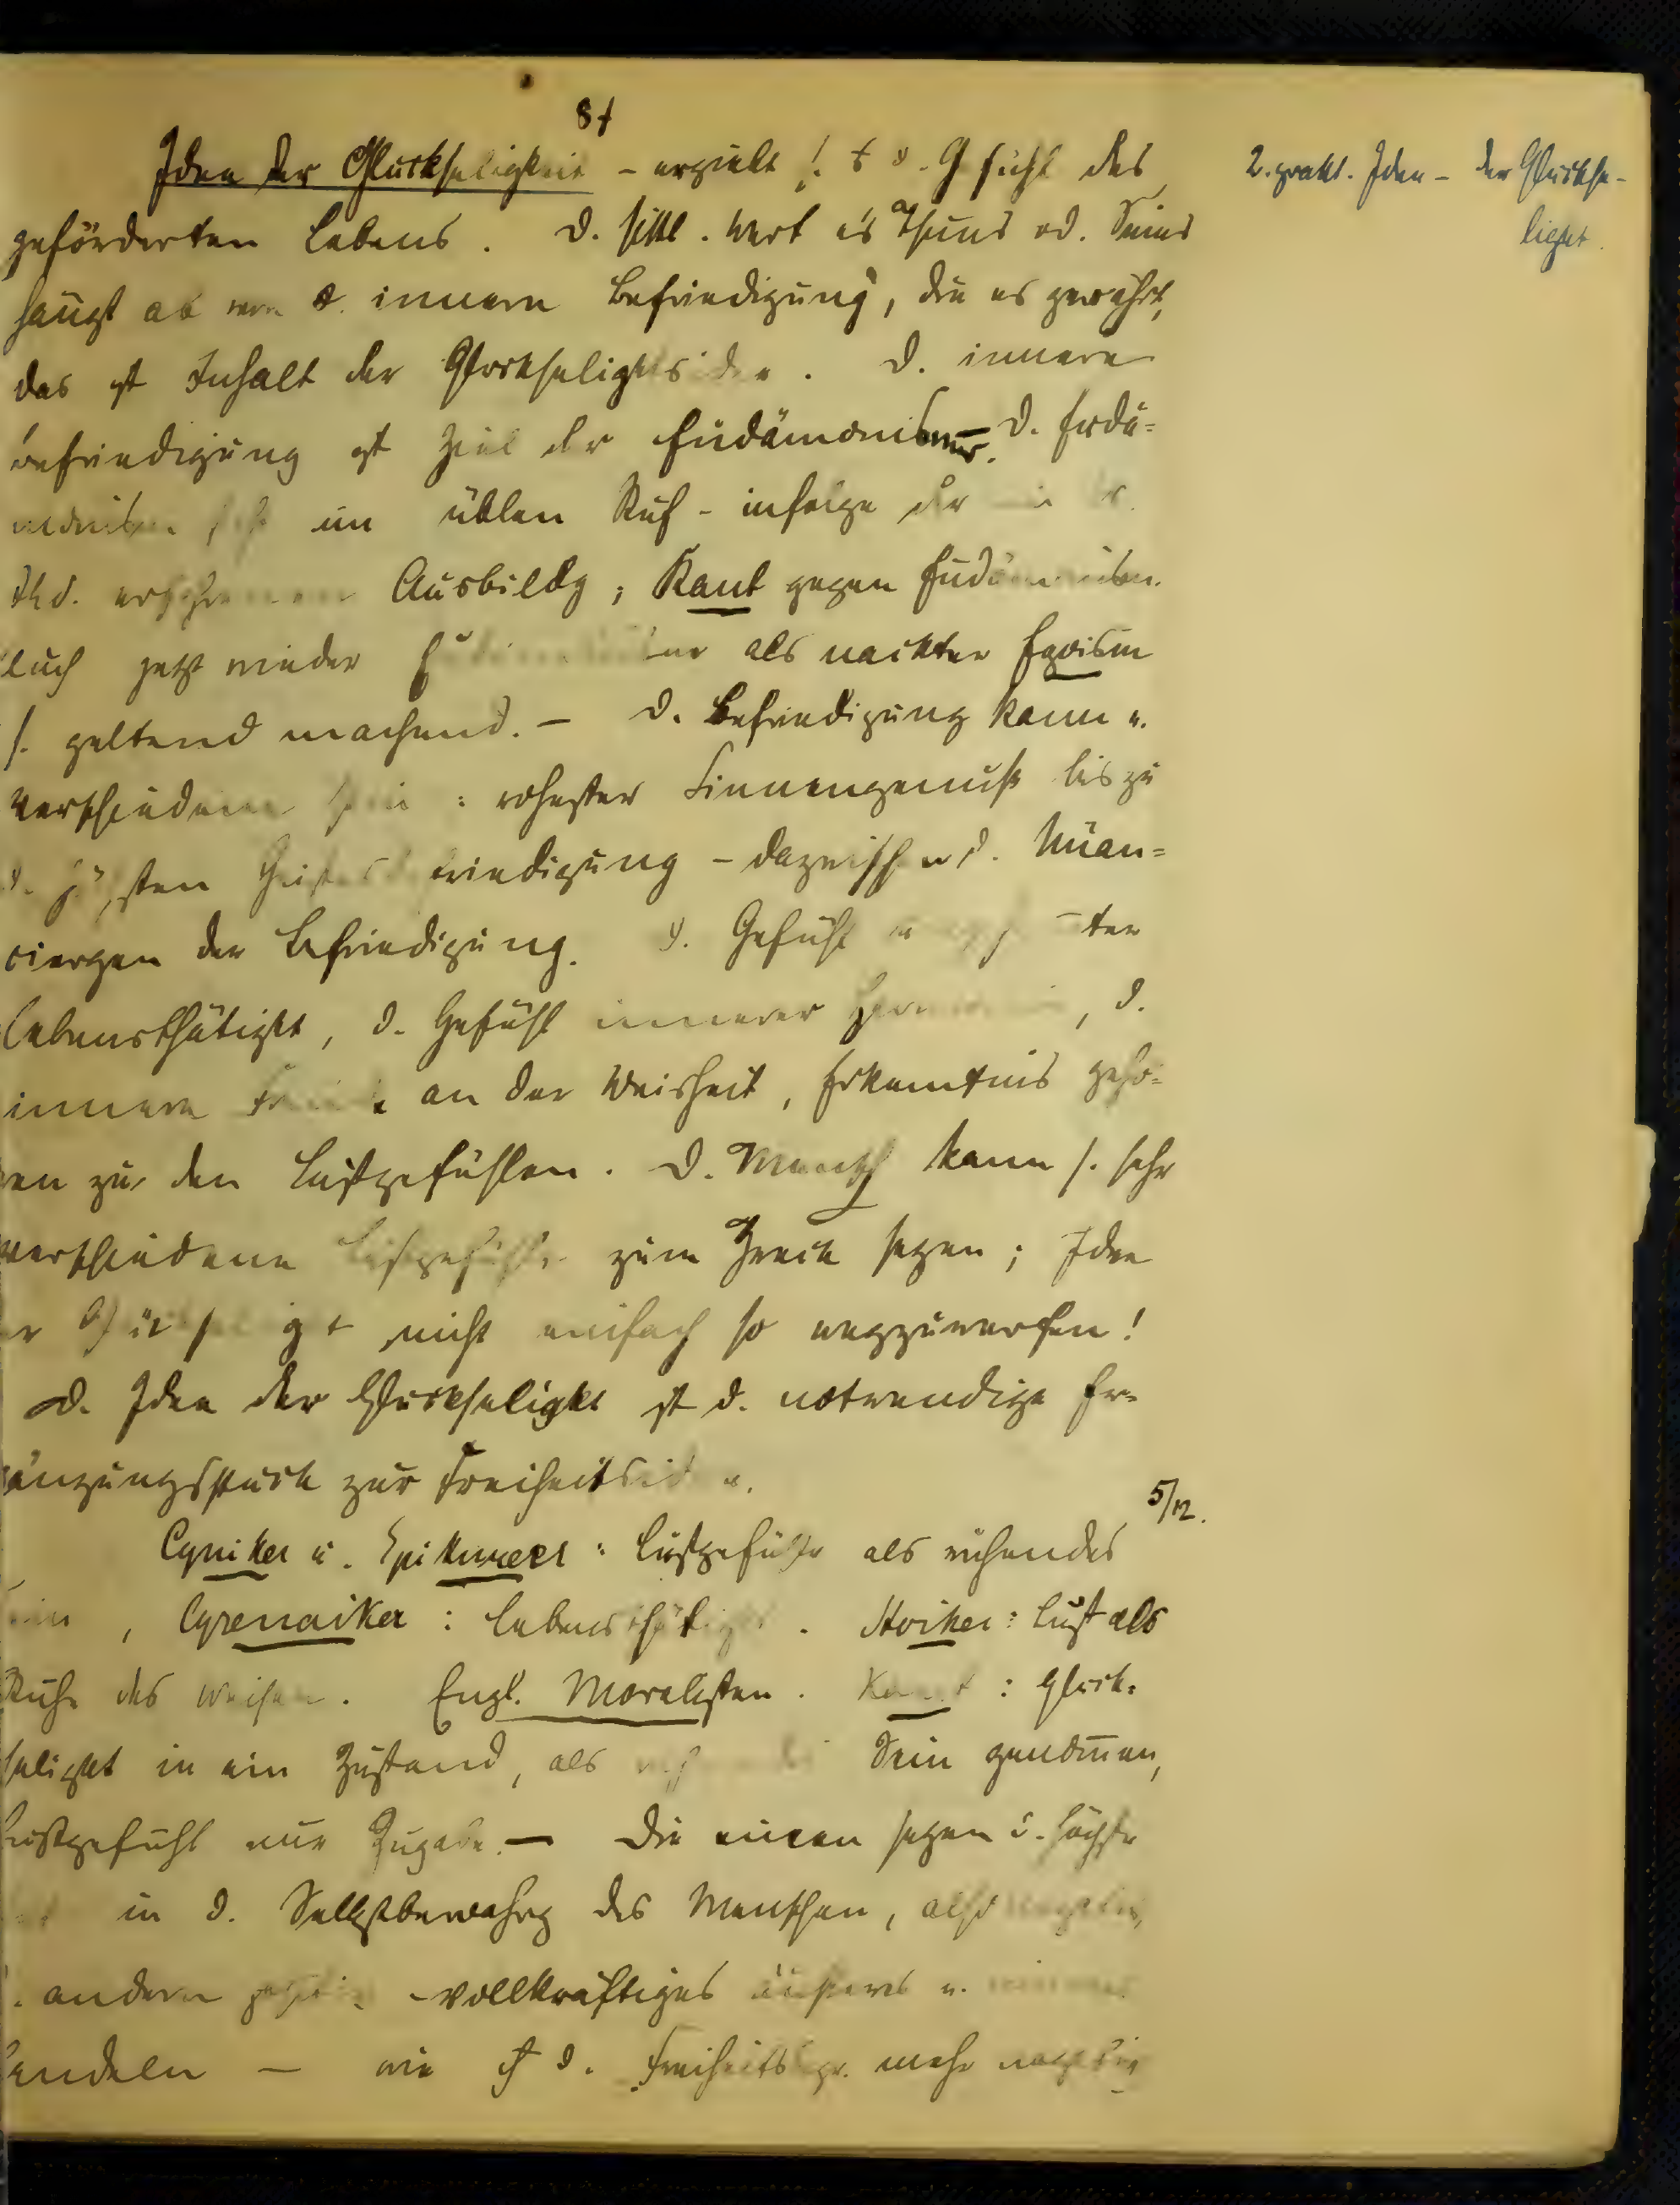 81
Idee der Glückseligkeit - erzielt s. d. Gefühl des
2. prakt. Idee - der Glückse-
ligkt.
geförderten Lebens. D. sittl. Wert es Thuns od. Seins
hängt ab von d. innern Befriedigung, die es gewährt,
das ist Inhalt der Glückseligktsidee. D. innere
Befriedigung ist Ziel der Eudämonismus. D. Eudä-
monism im üblen Ruf - infolge der
Ausbildg; Kant gegen Eudämonism.
Auch jetzt wieder als nackter Egoism
s. geltend machend. - D. Befriedigung kann e.
verschiedene sein: rohester Sinnengenuß bis zu
d. höchsten Geistesbefriedigung - dazwischen d. Nüan-
ciergen der Befriedigung. D. Gefühl
Lebensthätigkt, d. Gefühl innerer Harmonie, d.
innere Freude an der Weisheit, Erkenntnis gehö-
ren zu den Lustgefühlen. D. Mensch kann s. sehr
verschiedene Lustgefühle zum Zweck setzen; Idee
der Glückseligkt nicht einfach so wegzuwerfen!
D. Idee der Glückseligkt ist d. notwendige Er-
gänzungsstück zur Freiheitsidee.
5/12.
Cyniker u. Epikureer: Lustgefühle als ruhendes
Sein, Cyrenaiker: Lebensthätigkt. Stoiker: Lust als
Ruhe des Weisen. Engl. Moralisten. Kant: Glück-
seligkt in ein Zustand, als ruhendes Sein genom̄en,
Lustgefühl nur Zugabe. - Die einen setzen d. höchste
in d. Selbstbewahrg des Menschen, also negativ,
d. andern positiv - vollkräftiges äußeres u. inneres
Handeln - wie ist d. Freiheitsbegr. mehr negativ